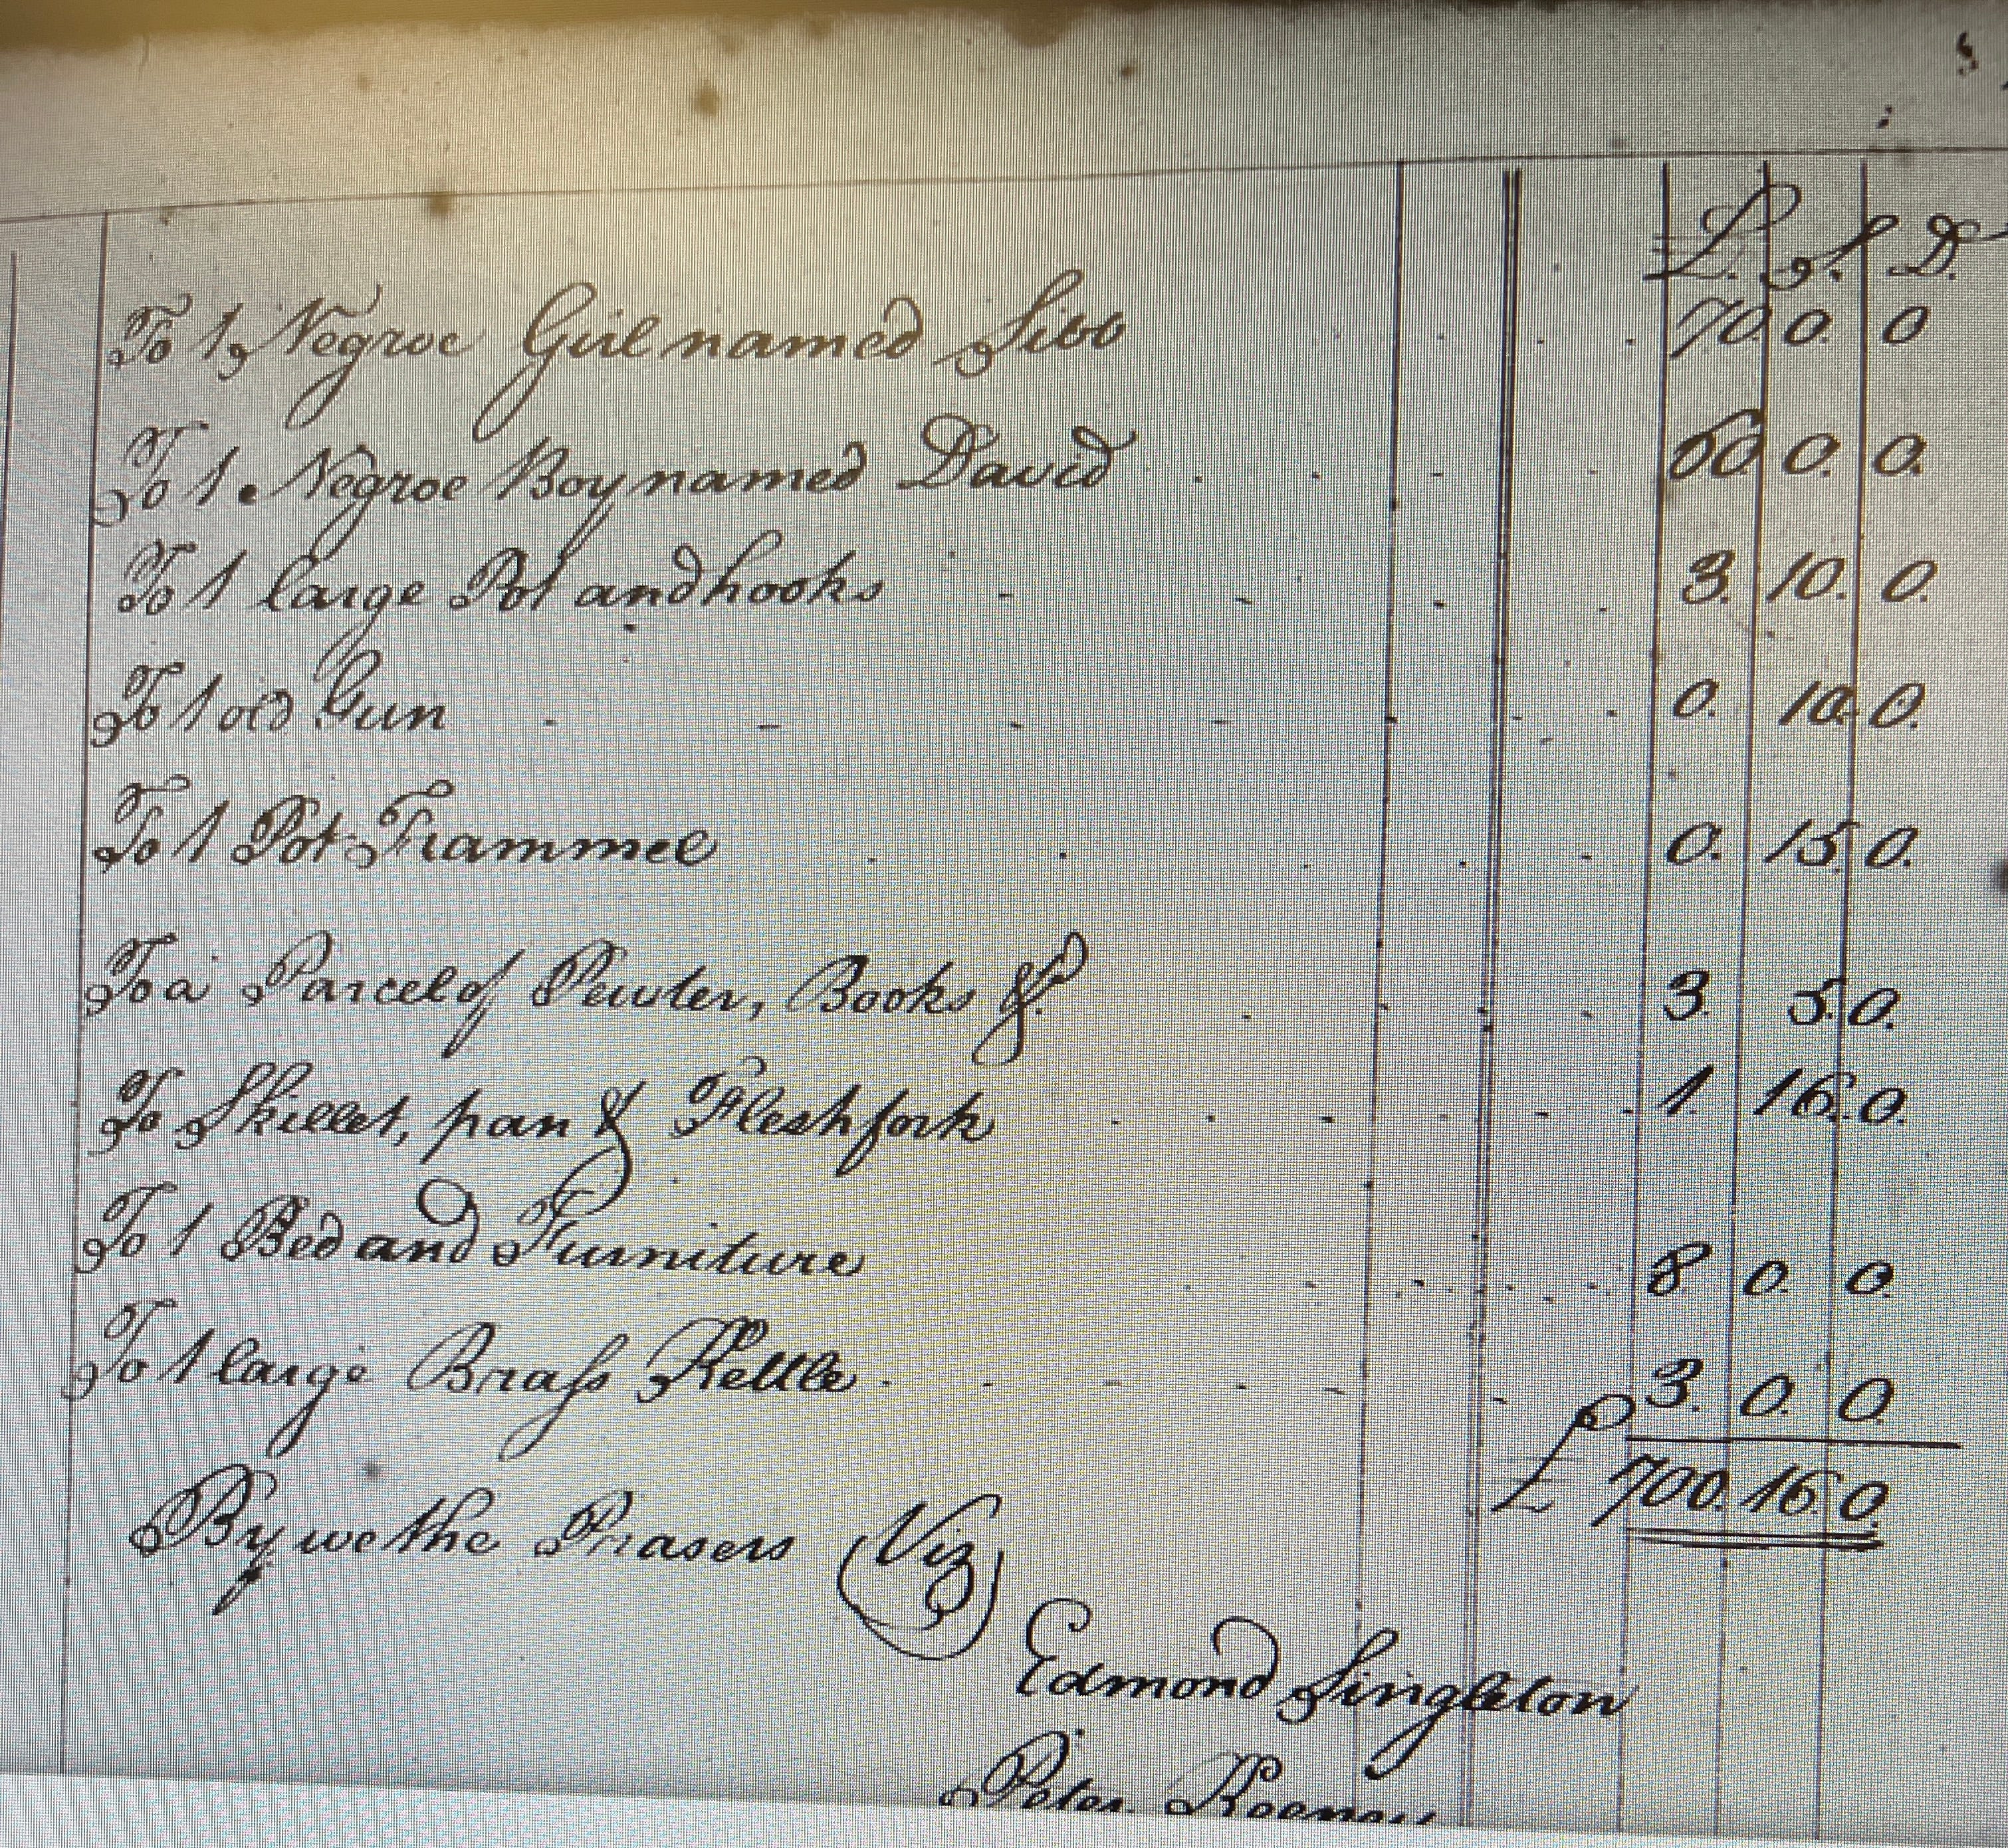 £. s. D.
To 1, Negroe Girl named Sibb . . 70. 0. 0
To 1. Negroe Boy named David . . - . 60 0. 0.
To 1 large Pot and hooks . - - - . 3. 10. 0.
To 1 old Gun - - - - - . 0. 10. 0.
To 1 Pot Trammel . . . . . 0. 15. 0.
To a Parcel of Pewter, Books &c . . . 3. 5. 0.
To Skillet, pan & Fleshfork . . . - . 1. 16. 0.
To 1 Bed and Furniture . . . . . 8 0. 0.
To 1 large Brass Kettle . - - - - - 3. 0. 0
£ 700. 16. 0.
By we the Prasers (Viz)
Edmond Singleton
Peter